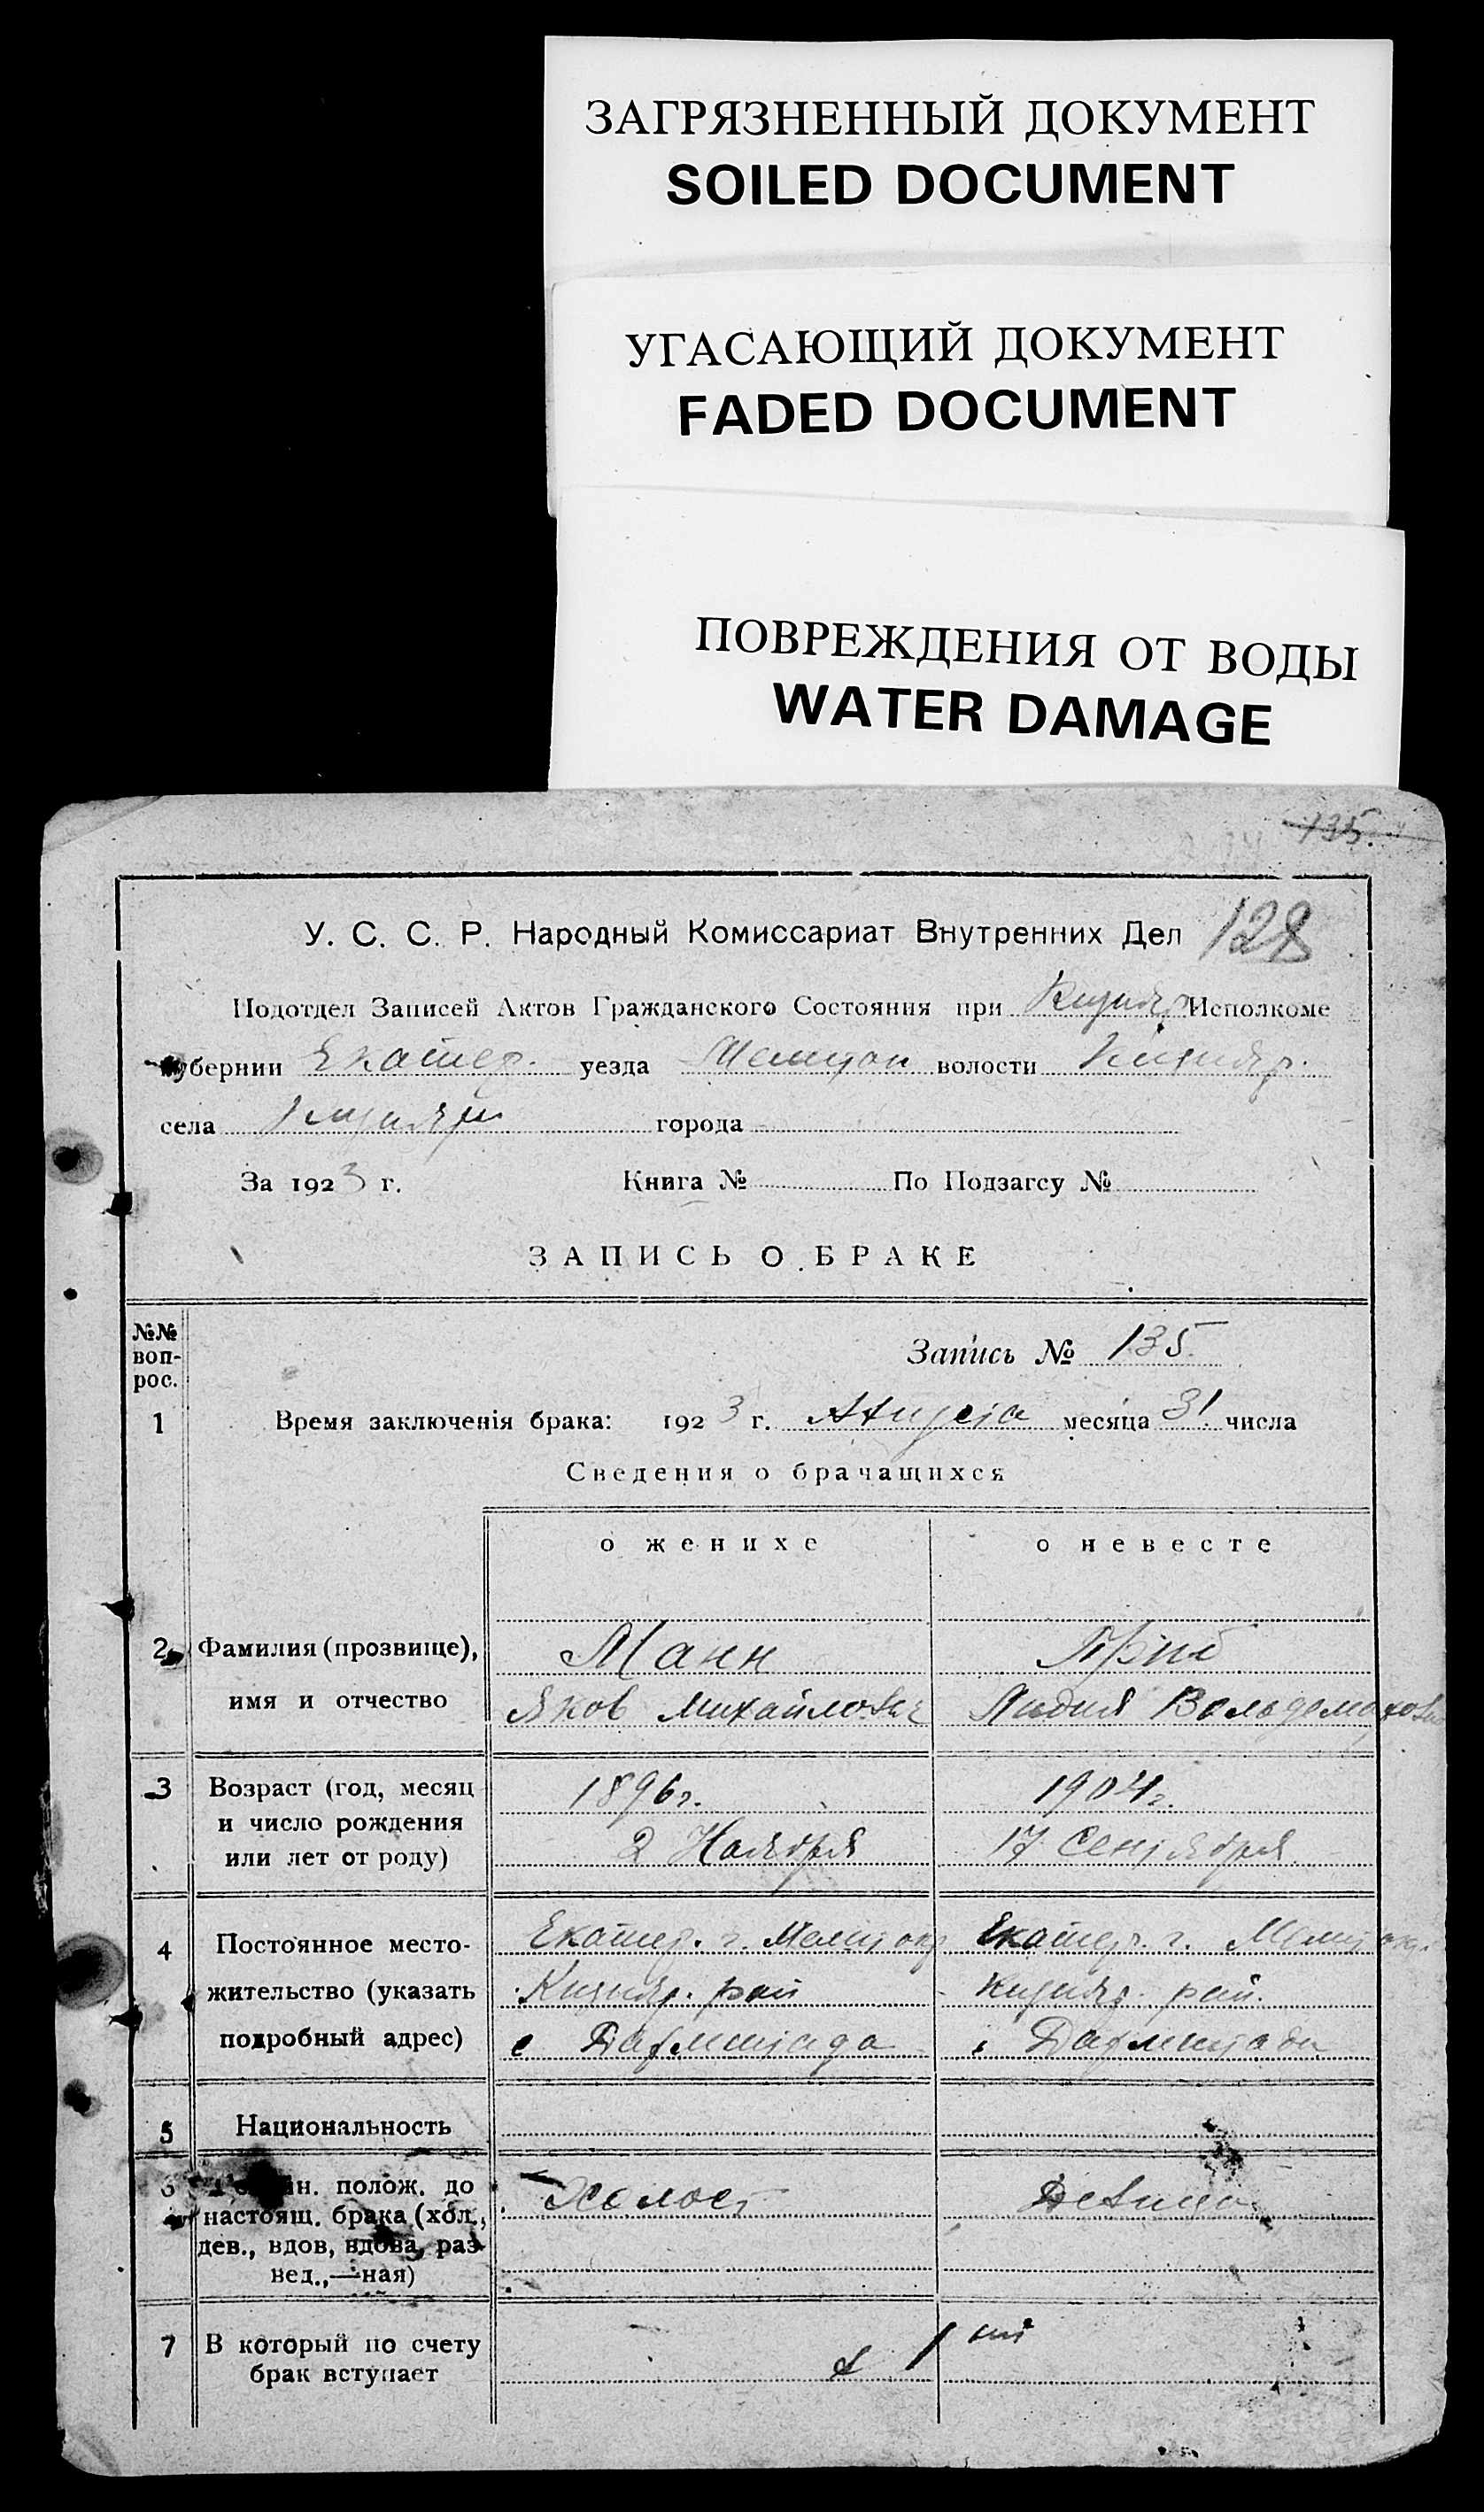 ЗАГРЯЗНЕННЫЙ ДОКУМЕНТ
SOILED DOCUMENT
УГАСАЮЩИЙ ДОКУМЕНТ
FADED DOCUMENT
ПОВРЕЖДЕНИЯ ОТ ВОДЫ
WATER DAMAGE
135.
У. С. С. Р. Народный Комиссариат Внутренних Дел 128
Подотдел Записей Актов Гражданского Состояния при Кизияр Исполкоме
губернии Екатер. уезда Мелитоп волости Кизияр.
села Кизияр города
За 1923 г. Книга № По Подзагсу №
ЗАПИСЬ О БРАКЕ
№№
воп-
рос.
Запись № 135
1 Время заключенія брака: 1923 г. Августа месяца 31 числа
Сведения о брачащихся
о женихе о невесте
2 Фамилия (прозвище), Манн
имя и отчество Яков Михайлович Лидия
3 Возраст (год, месяц 1896 г. 1904 г.
и число рождения 2 Ноября 17 Сентября
или лет от роду)
4 Постоянное место- Екатер. г. Мелит окр Екатер. г. Мелит окр.
жительство (указать Кизияр. рай Кизияр. рай.
подробный адрес) с Дармштада с Дармштада
5 Национальность
6 полож. до Холост Девица
настоящ. брака (хол.,
дев., вдов, вдова, раз-
вед.,—ная)
7 В который по счету в 1ый
брак вступает